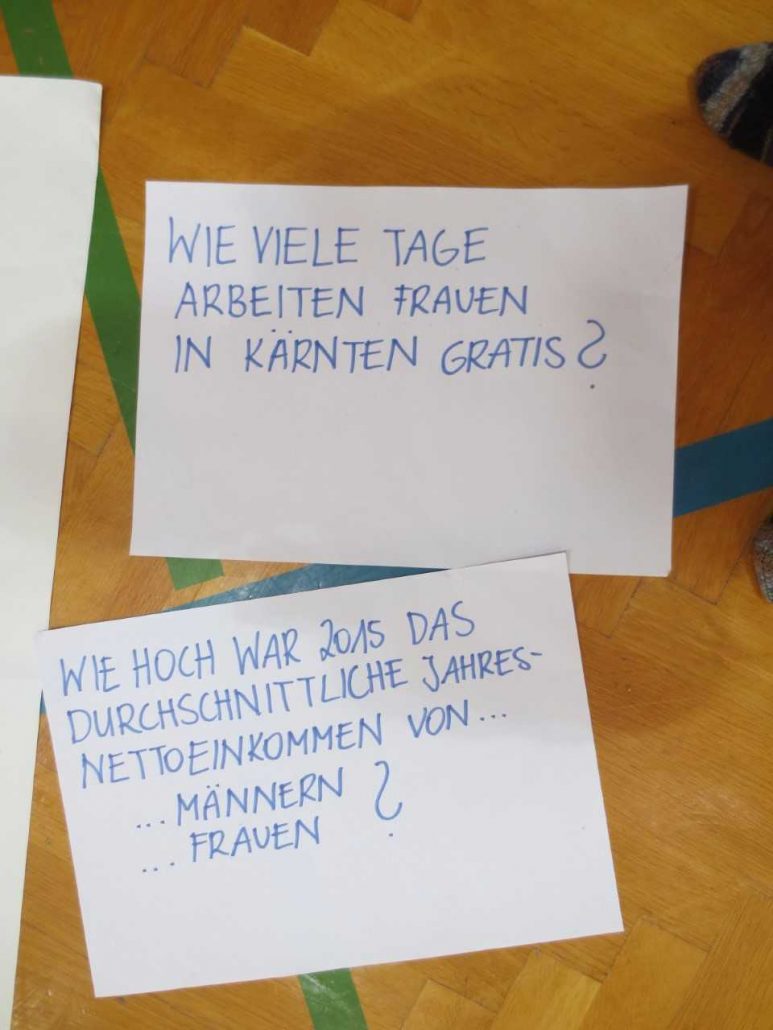 WIE VIELE TAGE
ARBEITEN FRAUEN
IN KÄRNTEN GRATIS?
WIE HOCH WAR 2015 DAS
DURCHSCHNITTLICHE JAHRES-
NETTOEINKOMMEN VON...
...MÄNNERN ?
... FRAUEN